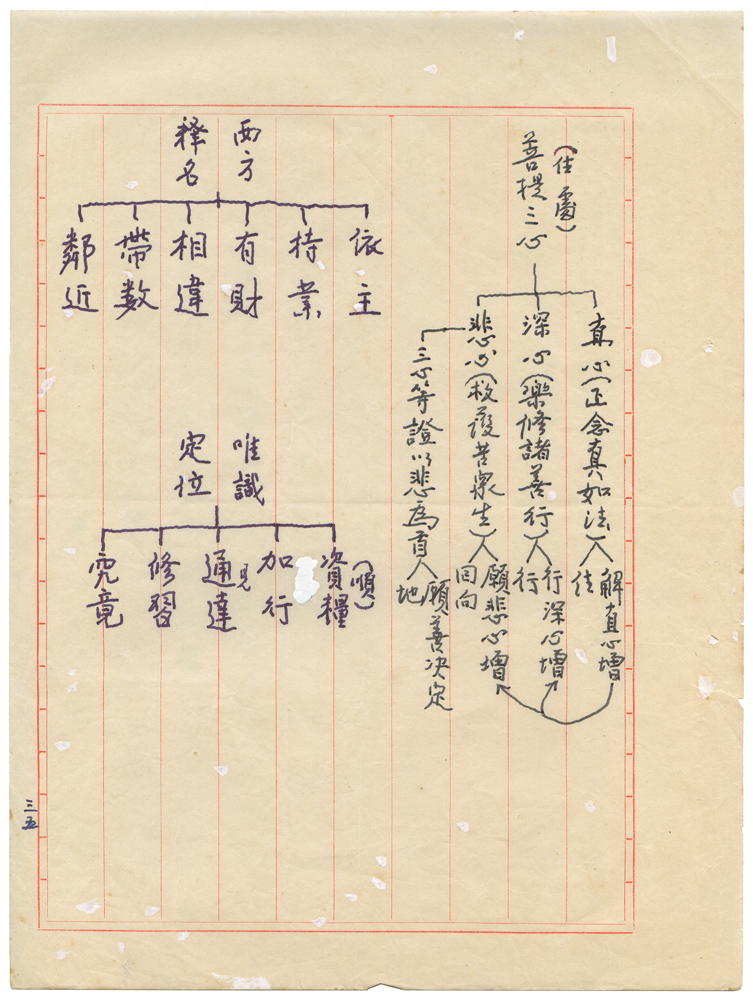 (住處)
菩提三心
真心(正念真如法)入住
解真心增
深心(樂修諸善行)入行
行深心增
悲心(救護苦眾生)入回向
願悲心增
三心等證以悲為首入地
願善決定
西方
釋名
依主
持業
有財
相違
帶数
鄰近
唯識
定位
(順)
資糧
加行
見
通達
修習
究竟
三五